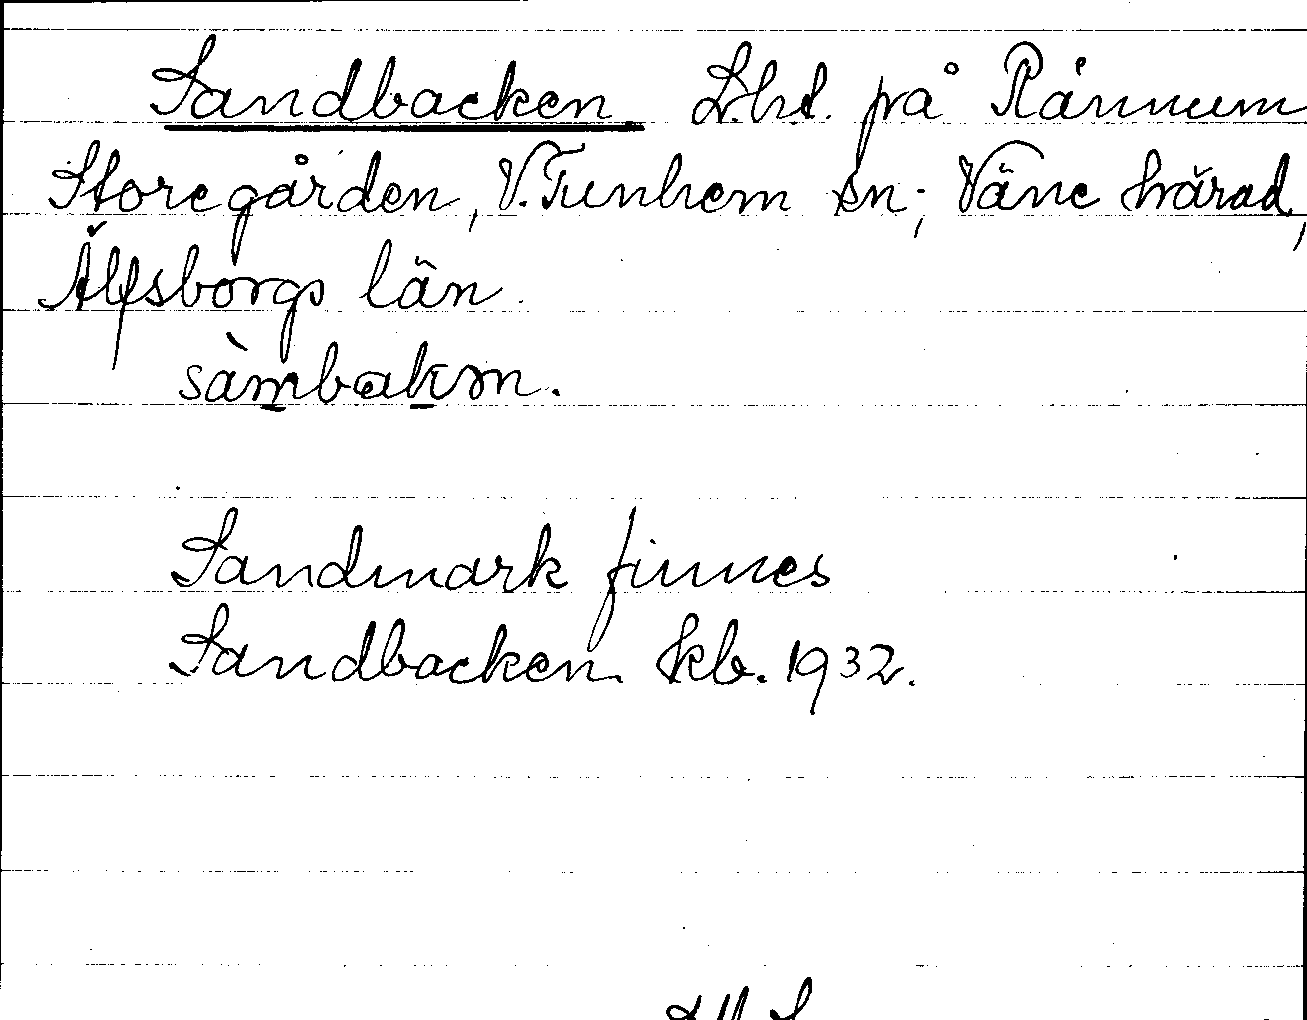 Sandbacken L.hd. på Rånnum
Storegården, V. Tunhem sn; Väne härad,
Älfsborgs län.
sàmbakm.
Sandmark finnes
Sandbacken kb. 1932.